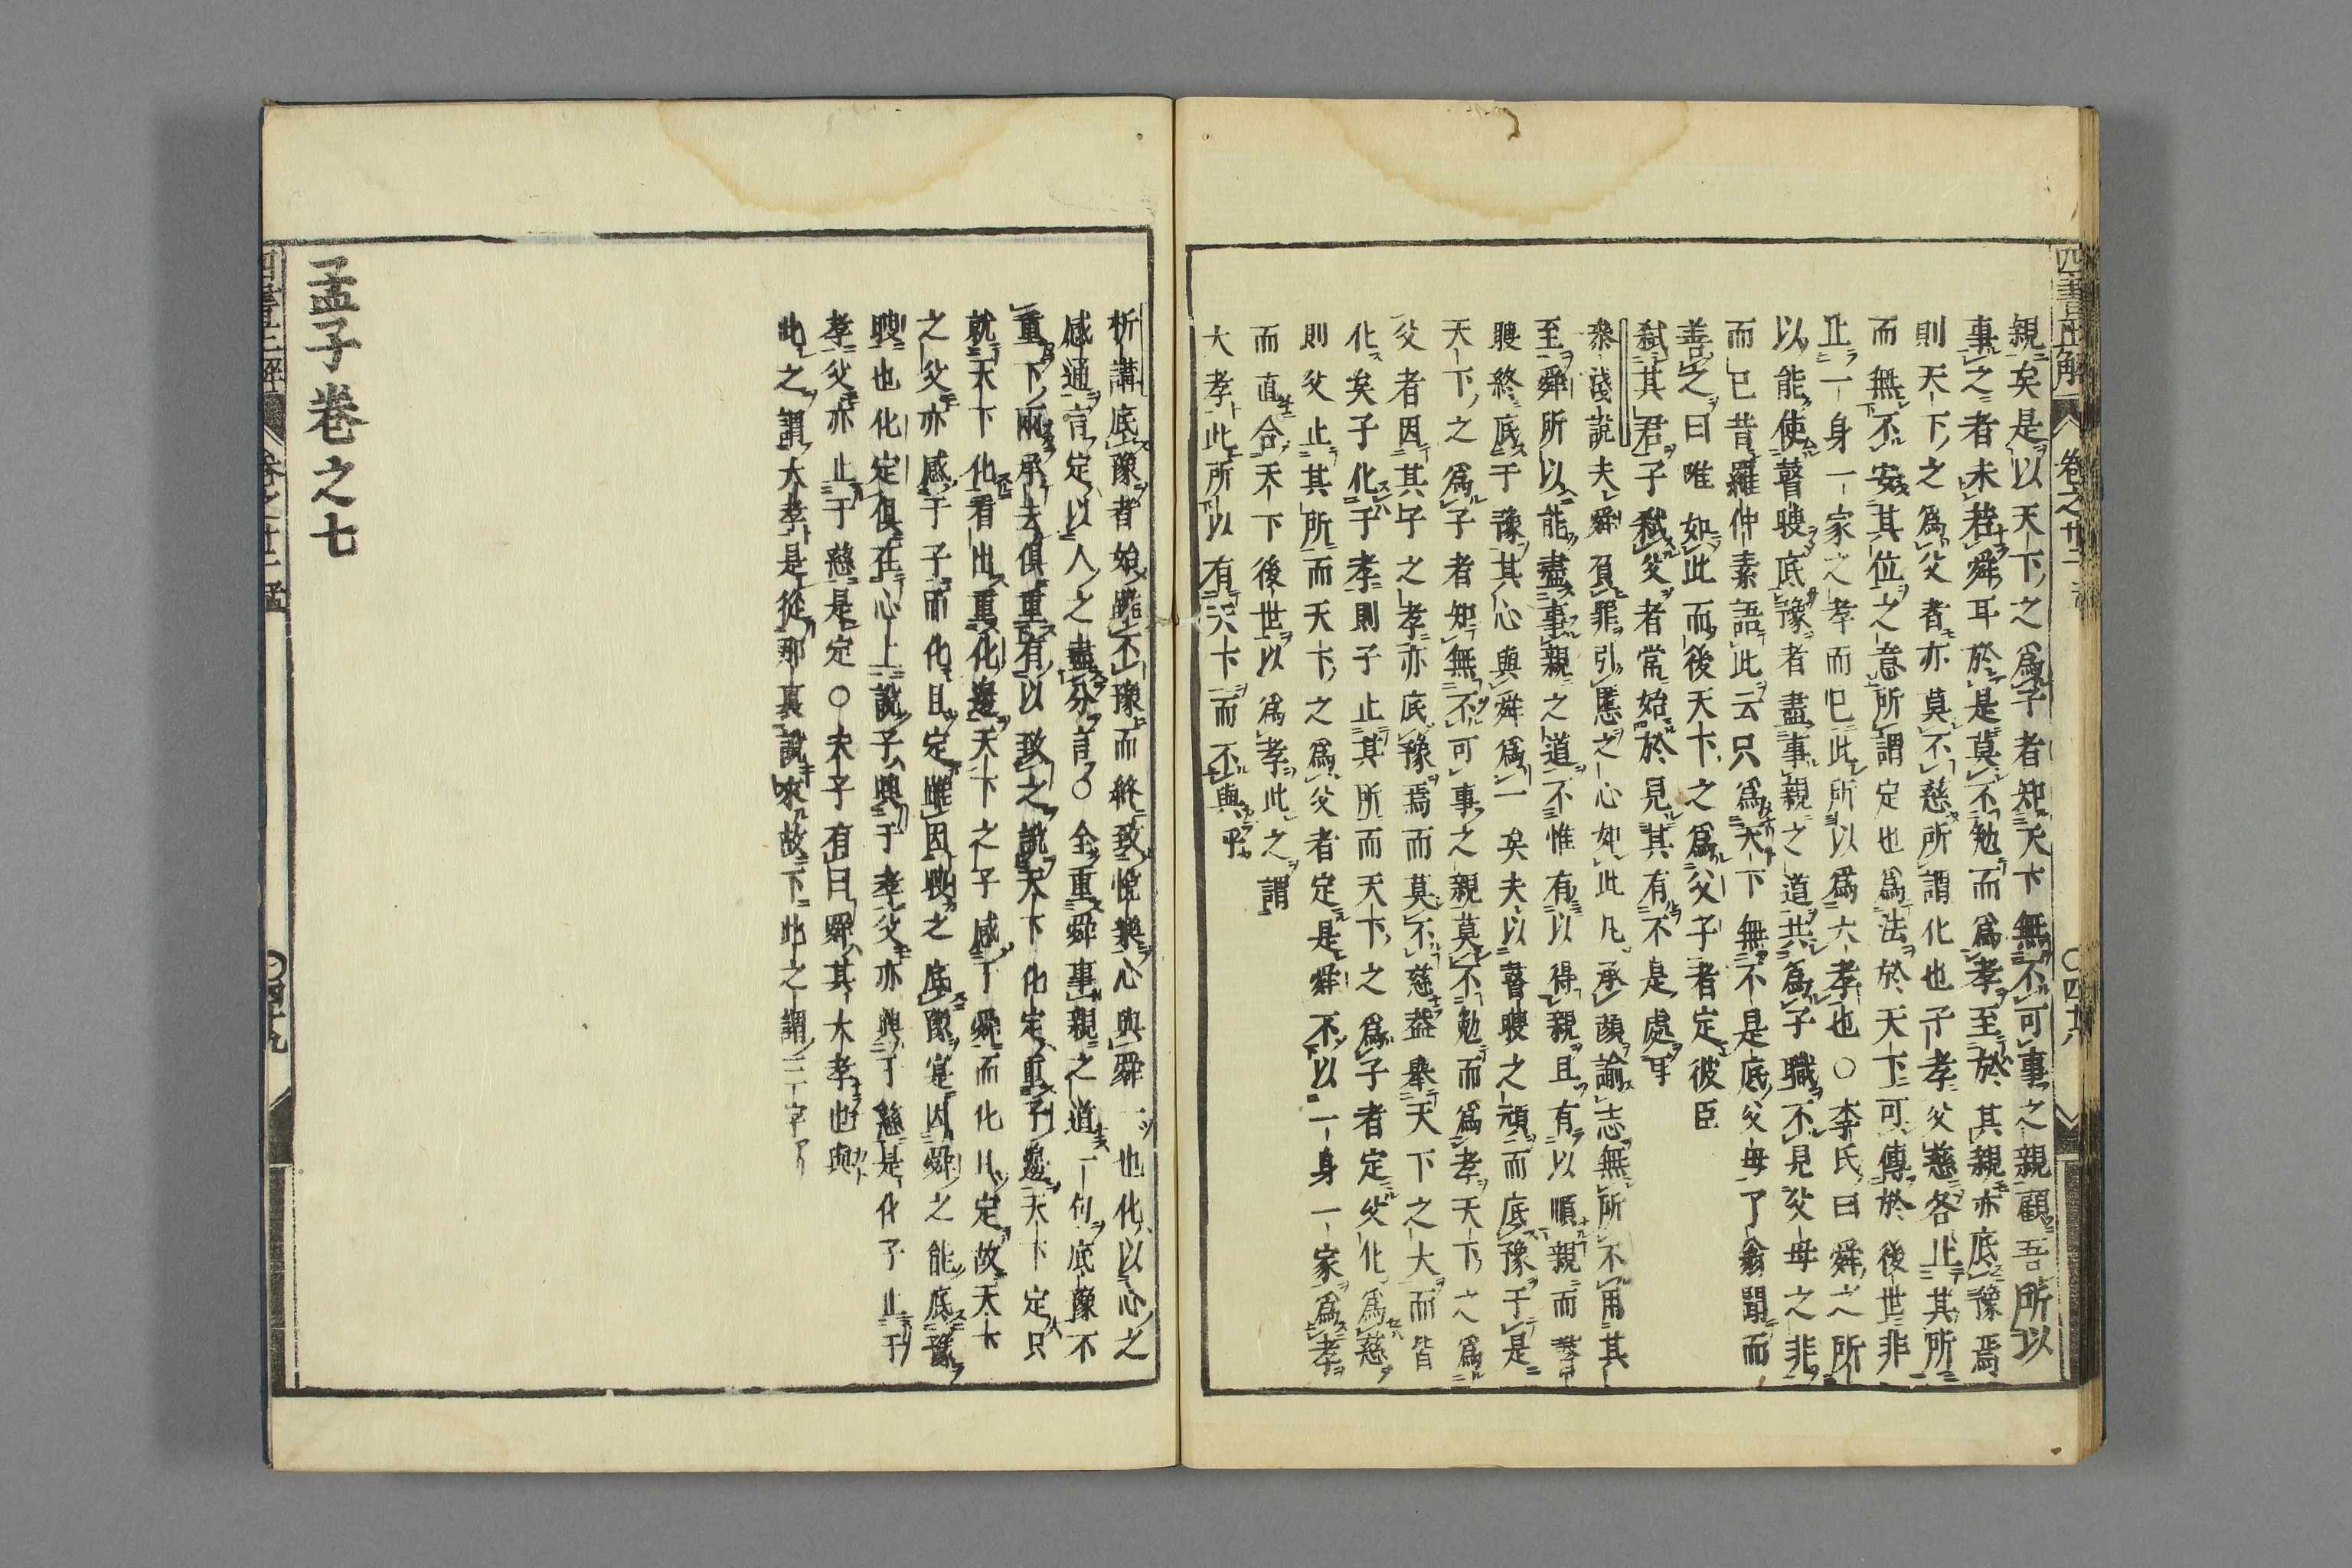 四書正解
卷之廿二
○四十八
親矣是以天下之爲子者知天下無不可事之親顧吾所以
事之者未若舜耳於是莫不勉而爲孝至於其親亦底豫焉
則天下之爲父者亦莫不慈所謂化也子孝父慈各止其所
而無不安其位之意所謂定也爲法於天下可傳於後世非
止一身一家之孝而已此所以爲大孝也○李氏曰舜之所
以能使瞽瞍底豫者盡事親之道共爲子職不見父母之非
而已昔羅仲素語此云只爲天下無不是底父母了翁聞而
善之曰唯如此而後天下之爲父子者定彼臣
弑其君子弑父者常始於見其有不是處耳
參淺說夫舜負罪引慝之心如此凡承顔諭志無所不用其
至舜所以能盡事親之道不惟有以得親且有以順親而瞽
瞍終底于豫其心與舜爲一矣夫以瞽瞍之頑而底豫于是
天下之爲子者知無不可事之親莫不勉而爲孝天下之爲
父者因其子之孝亦底豫焉而莫不慈葢舉天下之大而皆
化矣子化于孝則子止其所而天下之爲子者定父化爲慈
則父止其所而天下之爲父者定是舜不以一身一家爲孝
而直合天下後世以爲孝此之謂
大孝此所以有天下而不與乎
析講底豫者始雖不豫而終致悅樂心與舜一也化以心之
感通言定以人之盡分言○全重舜事親之道一句底豫不
重下兩承去俱重有以致之說天下化定重子邊天下定只
就天下化看出重化邊天下之子感于舜而化且定故天下
之父亦感于子而化且定雖因瞍之底豫寔因舜之能底豫
瞍也化定俱在心上說子興于孝父亦興于慈是化子止于
孝父亦止于慈是定○朱子有曰舜其大孝也與
此之謂大孝是從那裏說來故下此之謂三字
孟子卷之七
四書正解
卷之廿二孟
○四十九